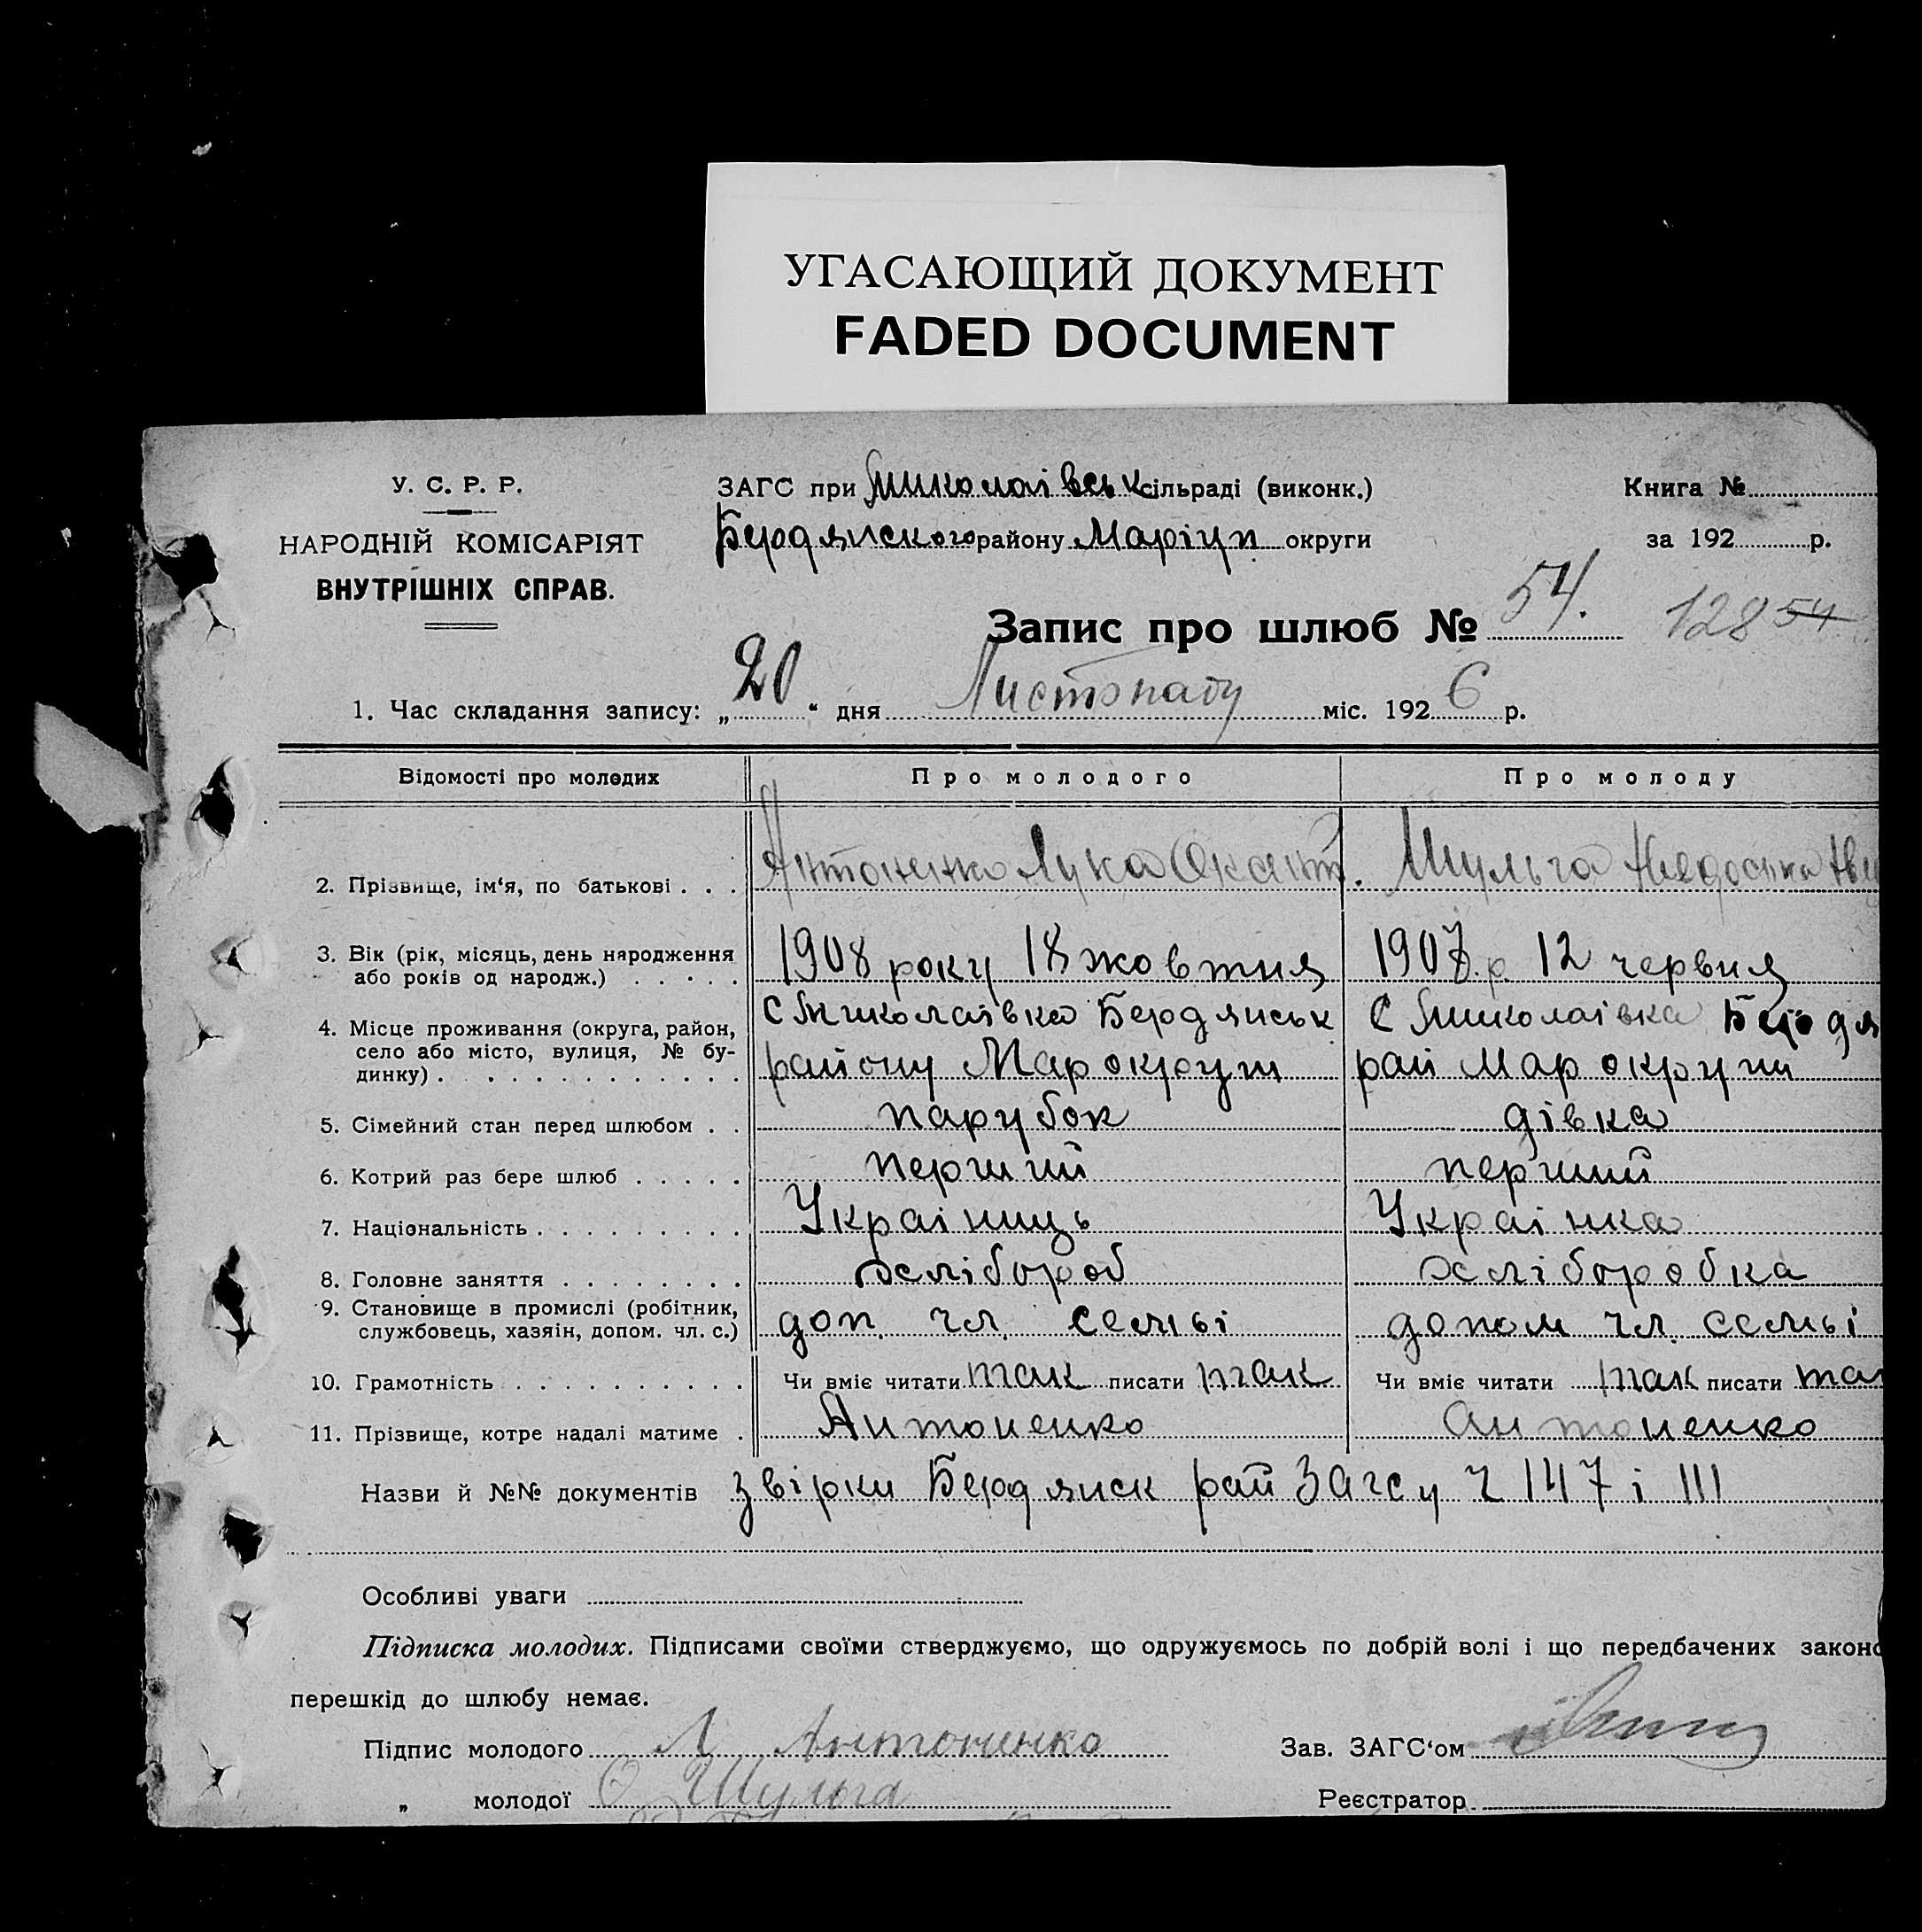 УГАСАЮЩИЙ ДОКУМЕНТ
FADED DOCUMENT
У. С. Р. Р.
НАРОДНІЙ КОМІСАРІЯТ
ВНУТРІШНІХ СПРАВ.
ЗАГС при Миколаівськ сільраді (виконк.)
Бердянского району Маріуп округи
Книга №
за 192 р.
Запис про шлюб № 54. 128 54
1. Час складання запису: „20“ дня Листопаду міс. 1926 р.
Відомості про молодих Про молодого Про молоду
2. Прізвище, ім‘я, по батькові . . . Антоненко Лука . Шульга
3. Вік (рік, місяць, день народження
або років од народж.) . . . . . 1908 року 18 жовтня 1907 р. 12 червня
4. Місце проживання (округа, район,
село або місто, вулиця, № бу-
динку) . . . . . . . . . . . .
С Миколаівка Бердянськ С Миколаівка Бердя
району Мар округи рай Мар округи
5. Сімейний стан перед шлюбом . . парубок дівка
6. Котрий раз бере шлюб . . . . . перший перший
7. Національність . . . . . . . . . Украіниць Украінка
8. Головне заняття . . . . . . . . хлібороб хліборобка
9. Становище в промислі (робітник,
службовець, хазяін, допом. чл. с.) доп. чл. семьі допом чл. семьі
10. Грамотність . . . . . . . . . . Чи вміє читати так писати так Чи вміє читати так писати та
11. Прізвище, котре надалі матиме . Антоненко Антоненко
Назви й №№ документів звірки Бердянск рай Загсу ч 147 і 111
Особливі уваги
Підписка молодих. Підписами своїми стверджуємо, що одружуємось по добрій волі і що передбачених законо
перешкід до шлюбу немає.
Підпис молодого Л Антоненко Зав. ЗАГС‘ом
„ молодої Шульга Реєстратор